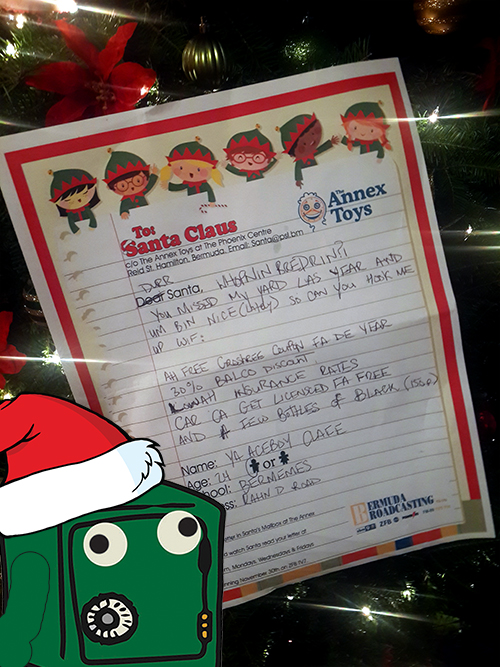 The Annex
Toys
To:
Santa Claus
c/o The Annex Toys at The Phoenix Centre
Reid St. Hamilton, Bermuda. Email: Santa@psl.bm
DURR
Dear Santa, WHOPNIN BREDRIN?!
YOU MISSED MY YARD LAS YEAR AND
UM BIN NICE (Lately) SO CAN YOU HOOK ME
UP WIF:
AH FREE GROSHREE COUPON FA DE YEAR
30% BALCO DISCOUNT
LOWAH INSURANCE RATES
CAR CA GET LICENSED FA FREE
AND A FEW BOTTLES OF BLACK (150p)
Name: YA ACEBOY
Age: 24 or
hool: BERMEMES
ss: RAHN D ROAD
etter in Santa's Mailbox at The Annex
d watch Santa read your letter at
m, Mondays, Wednesdays & Fridays
nning November 30th on ZFB TV7.
BERMUDA
BROADCASTING
ZFB